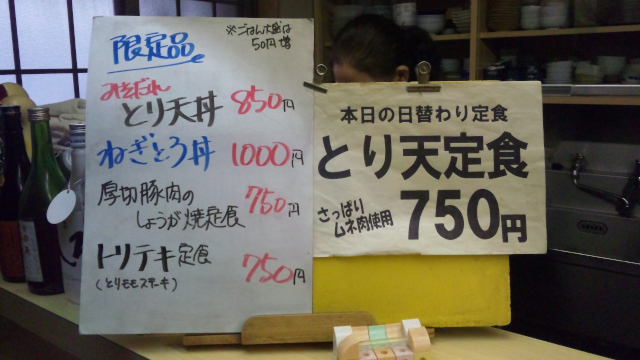 限定品
※ごはん大盛は
50円増
みそだれ
とり天丼 850円
ねぎとろ丼 1000円
厚切豚肉の
しょうが焼定食 750円
トリテキ定食
(とりモモステーキ) 750円
本日の日替わり定食
とり天定食
さっぱり
ムネ肉使用
750円